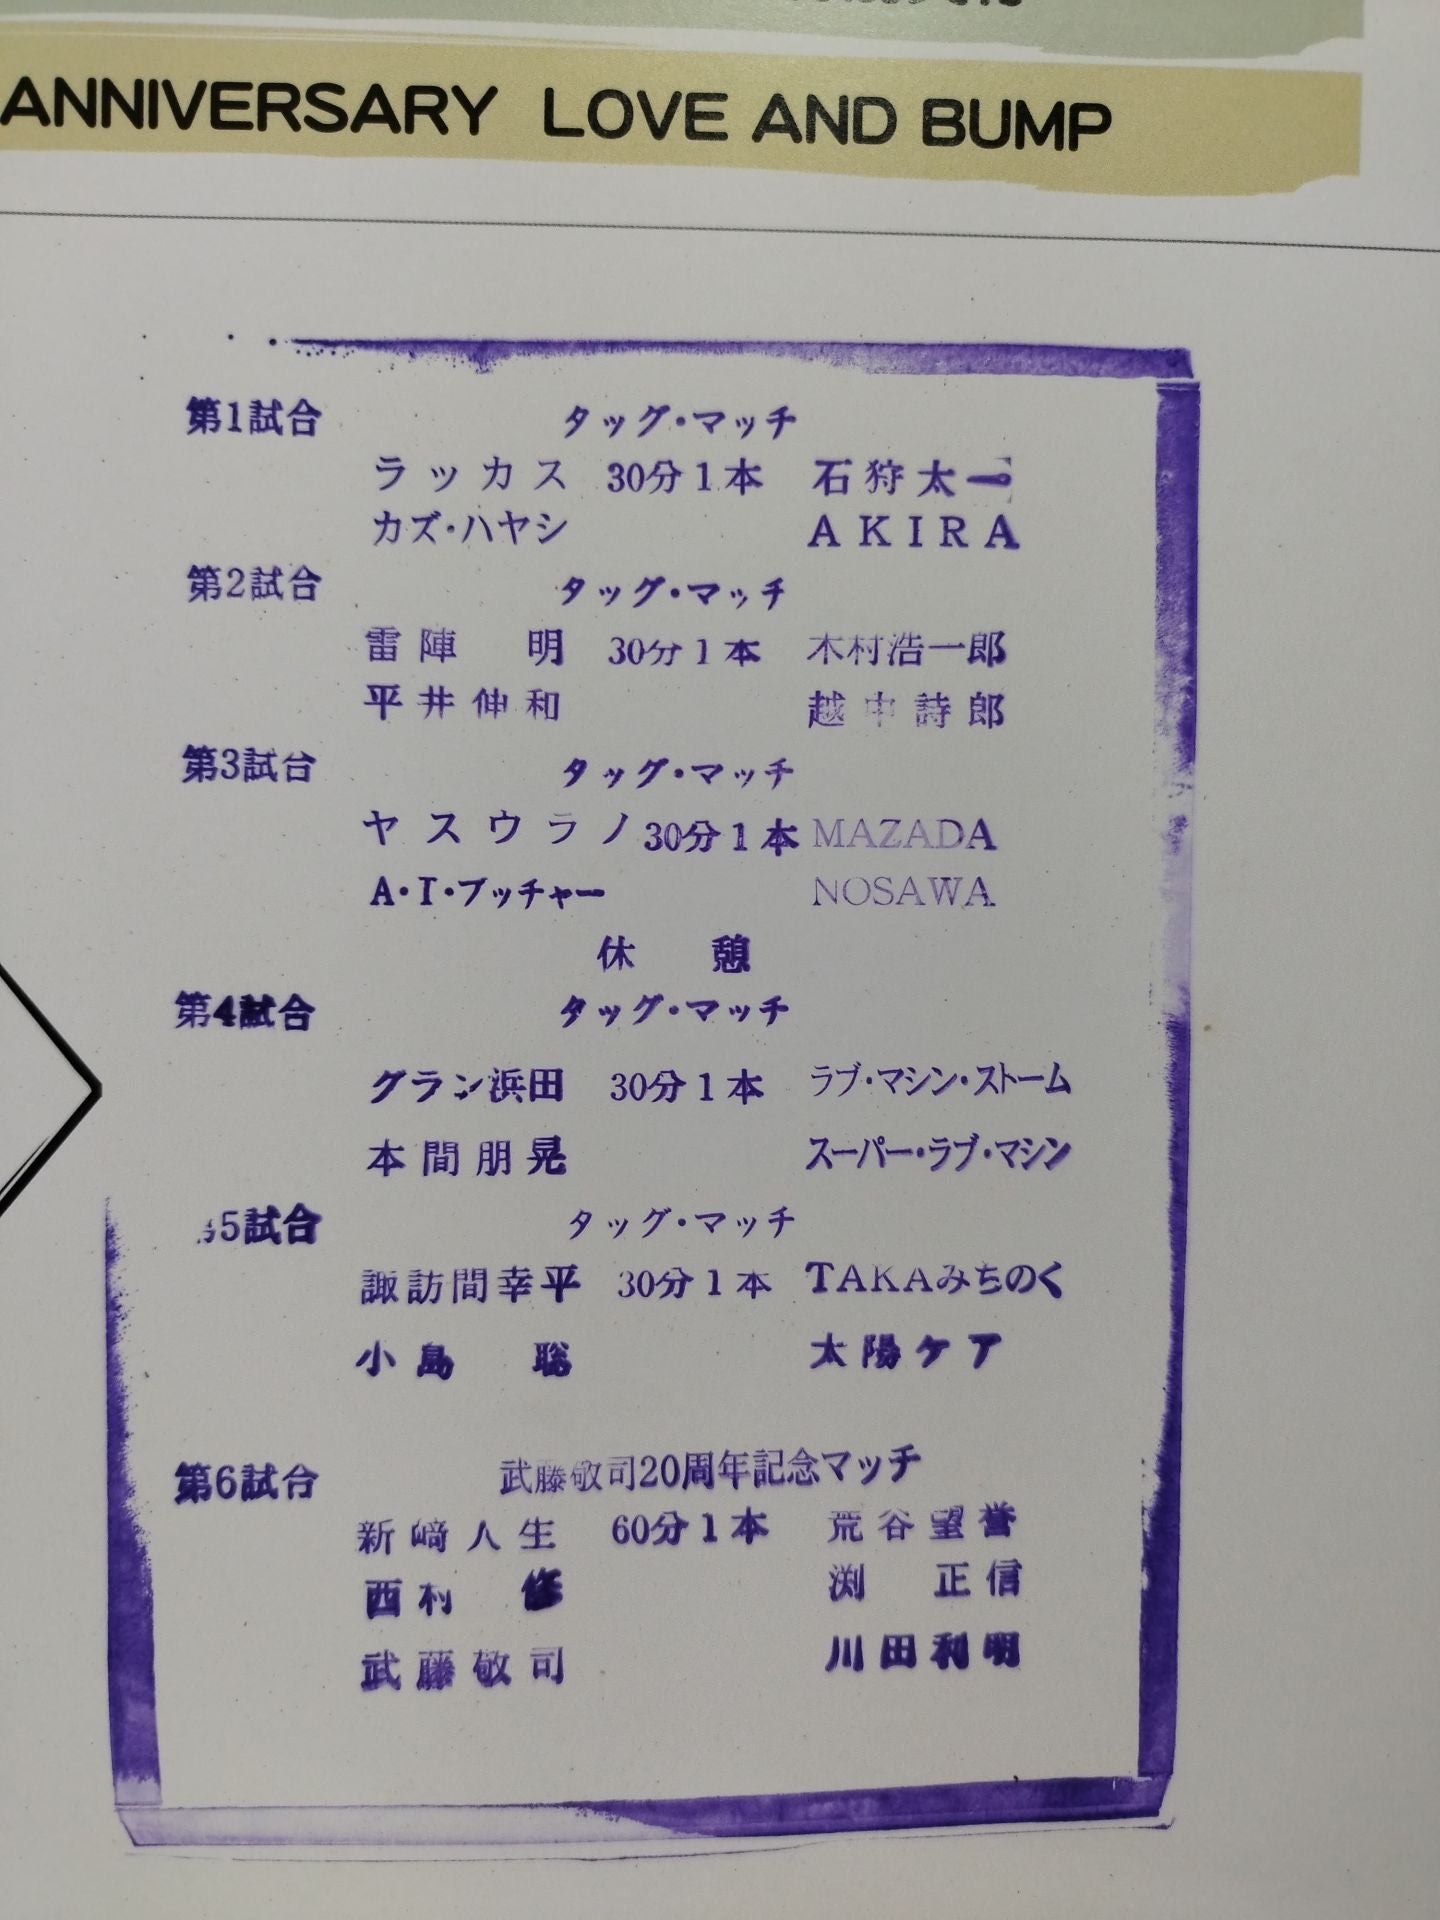 ANNIVERSARY LOVE AND BUMP
第1試合 タッグ・マッチ
ラッカス 30分1本 石狩太一
カズ・ハヤシ AKIRA
第2試合 タッグ・マッチ
雷陣 明 30分1本 木村浩一郎
平井伸和 越中詩郎
第3試合 タッグ・マッチ
ヤスウラノ 30分1本 MAZADA
A・T・ブッチャー NOSAWA
休 憩
第4試合 タッグ・マッチ
グラン浜田 30分1本 ラブ・マシン・ストーム
本間朋晃 スーパー・ラブ・マシン
第5試合 タッグ・マッチ
諏訪間幸平 30分1本 TAKAみちのく
小島 聡 太陽ケア
第6試合 武藤敬司20周年記念マッチ
新崎人生 60分1本 荒谷望誉
西村 修 渕 正信
武藤敬司 川田利明